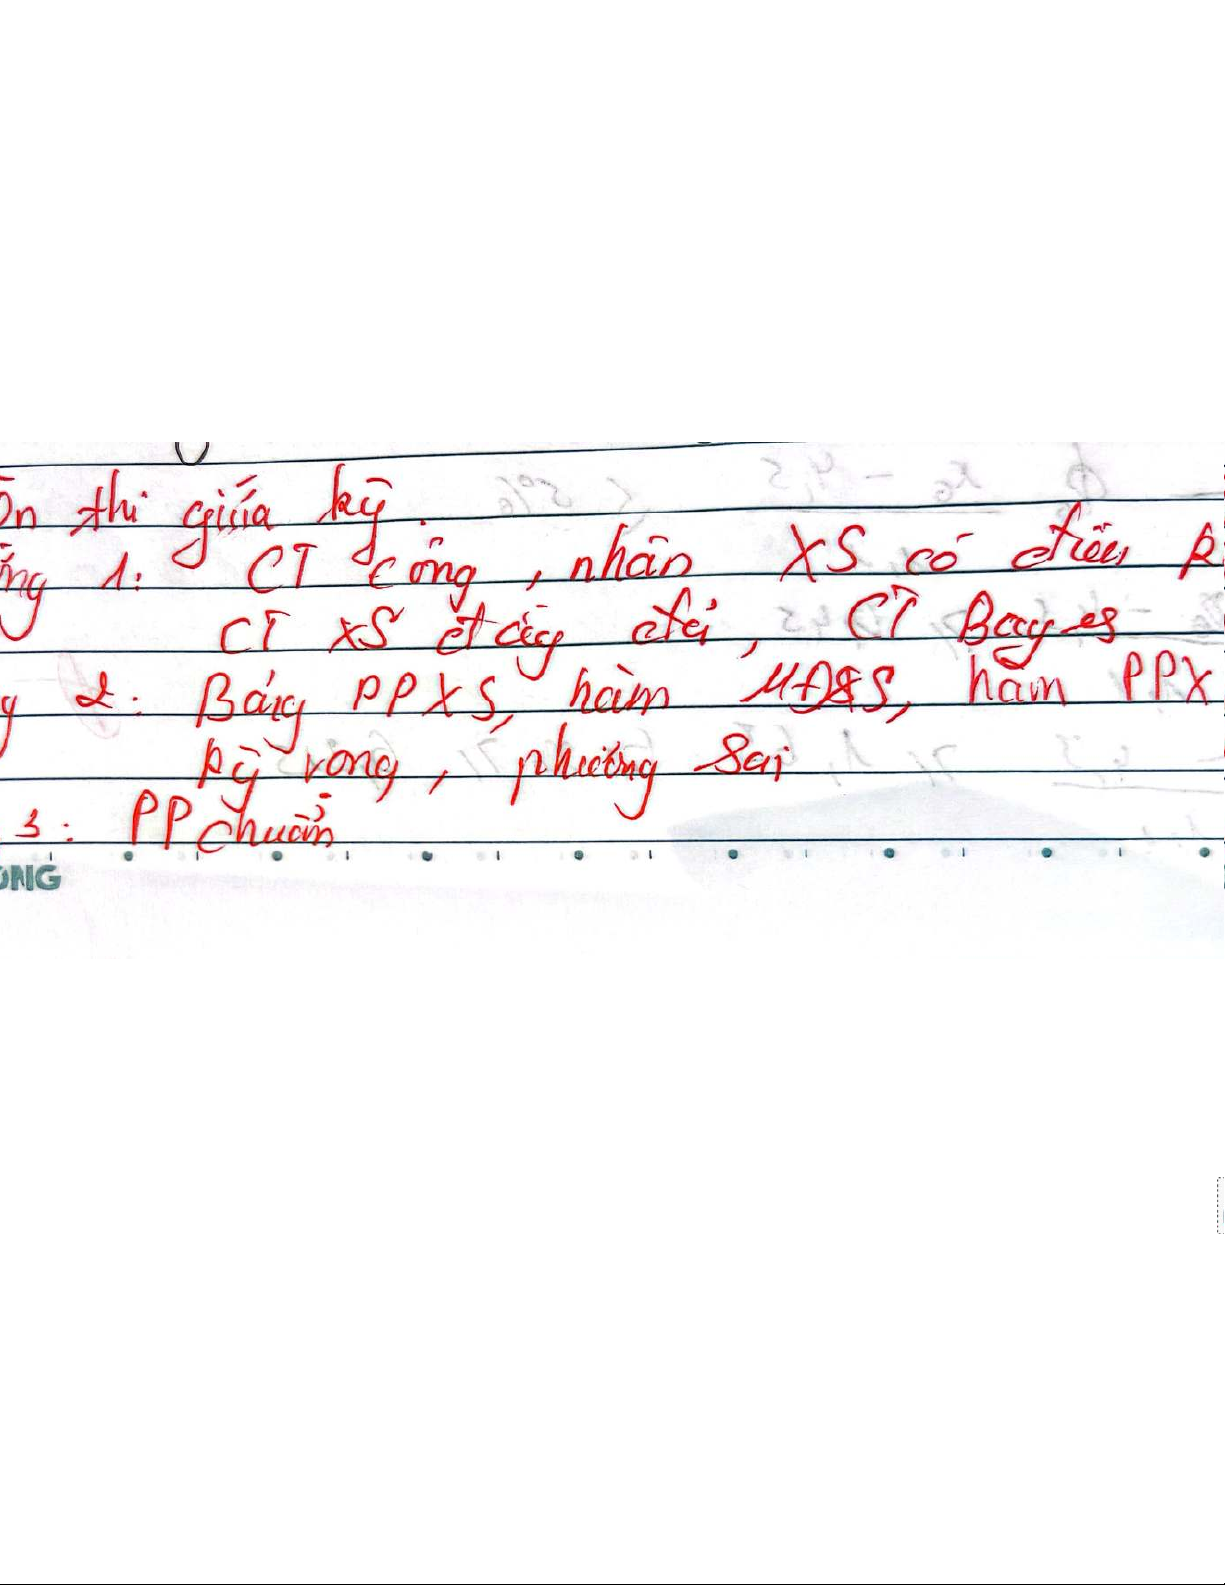 Ôn thi giữa kỳ.
ơng 1: CT cộng, nhân XS có điều k
CT XS đầy đủ, CT Bayes
g 2: Bảng PPXS, hàm MĐXS, hàm PPX
kỳ vọng, phương sai
3: PP chuẩn
ONG